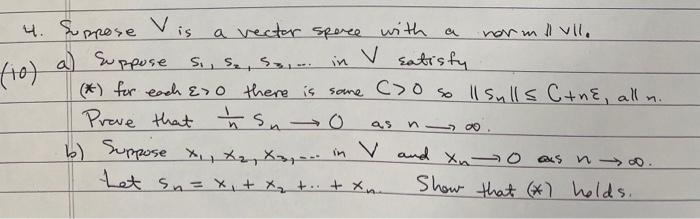 4. Suppose V is a vector space with a norm ||v||.
(10) a) Suppose s₁, s₂, s₃, ... in V satisfy
(*) for each ε>0 there is some C>0 so ||sₙ|| ≤ C+nε, all n.
Prove that 1/n sₙ → 0 as n → ∞.
b) Suppose x₁, x₂, x₃, ... in V and xₙ → 0 as n → ∞.
Let sₙ = x₁ + x₂ + ... + xₙ. Show that (*) holds.